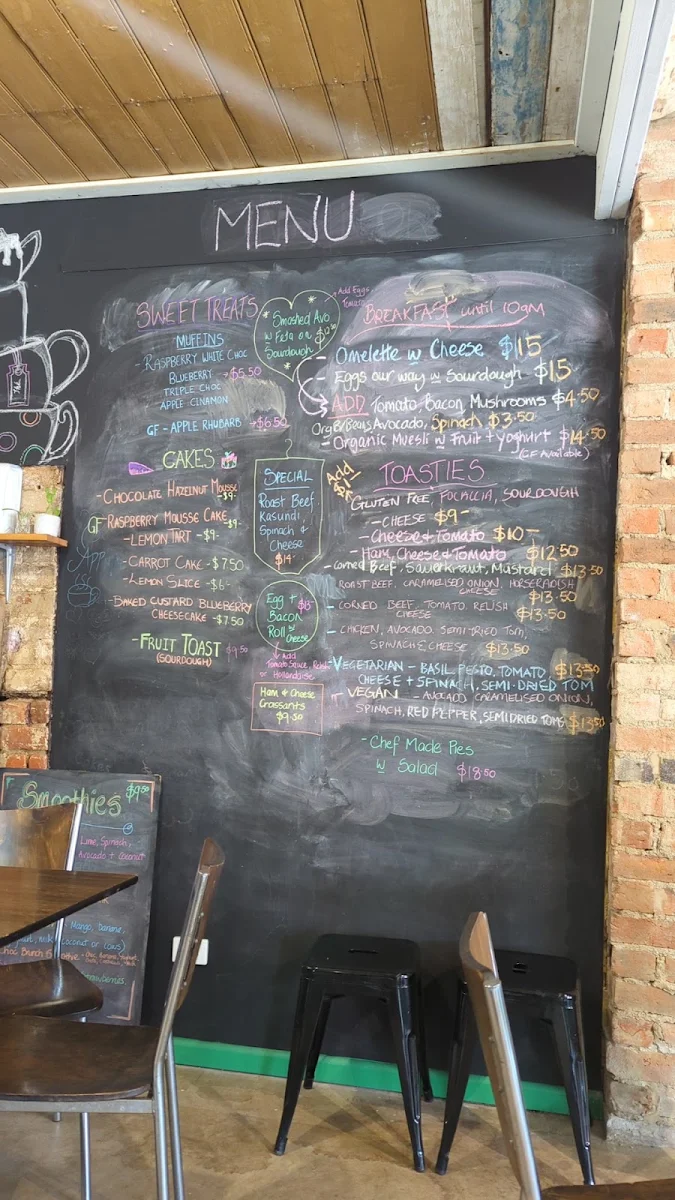 MENU
SWEET TREATS
MUFFINS
- RASPBERRY WHITE CHOC
BLUEBERRY - $5.50
TRIPLE CHOC
APPLE CINAMON
GF - APPLE RHUBARB - $6.50
CAKES
- CHOCOLATE HAZELNUT MOUSSE -$9-
GF RASPBERRY MOUSSE CAKE -$9-
- LEMON TART - $9-
- CARROT CAKE - $7.50
- LEMON SLICE - $6-
- BAKED CUSTARD BLUEBERRY
CHEESECAKE - $7.50
- FRUIT TOAST $9.50
(SOURDOUGH)
Add Eggs,
Tomato
Smashed Avo
w Feta on
Sourdough
SPECIAL
Roast Beef
Kasundi,
Spinach &
Cheese
$14-
Egg +
Bacon
Roll w
Cheese
Add
Tomato Sauce, Relish
or Hollandaise
Ham & Cheese
Crossants
$9.50
BREAKFAST until 10am
- Omelette w Cheese $15
- Eggs our way w Sourdough $15
ADD Tomato, Bacon Mushrooms $4.50
Avocado, Spinach $3.50
- Organic Muesli w Fruit + yoghurt $14.50
(GF Available)
TOASTIES
GLUTEN FREE, FOCALCIA, SOURDOUGH
- CHEESE $9-
- Cheese & Tomato $10-
- Ham, Cheese & Tomato $12.50
- Corned Beef, Sauerkraut, Mustard $13.50
ROAST BEEF, CARAMELISED ONION, HORSERADISH
CHEESE $13.50
- CORNED BEEF, TOMATO, RELISH
CHEESE $13.50
- CHICKEN, AVOCADO, SEMI-DRIED TOM,
SPINACH & CHEESE $13.50
- VEGETARIAN - BASIL PESTO, TOMATO, $13.50
CHEESE + SPINACH, SEMI-DRIED TOM
- VEGAN - AVOCADO, CARAMELISED ONION,
SPINACH, RED PEPPER, SEMI DRIED TOMS $13.50
- Chef Made Pies
w Salad $18.50
Smoothies $9.50
Lime, Spinach,
Avocado + Coconut
Mango, banana,
(coconut or cows)
Brunch